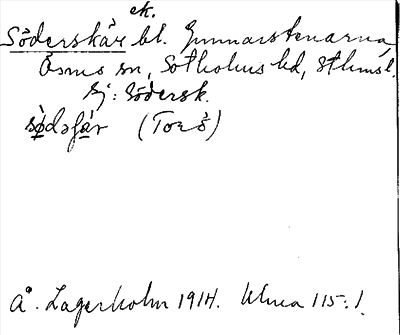 ek.
Söderskär bl. Gunnarstenarna,
Ösmo sn, Sotholms hd, Sthms l.
Ej: Södersk.
(Torö)
A. Lagerholm 1914. Ulma 115:1.